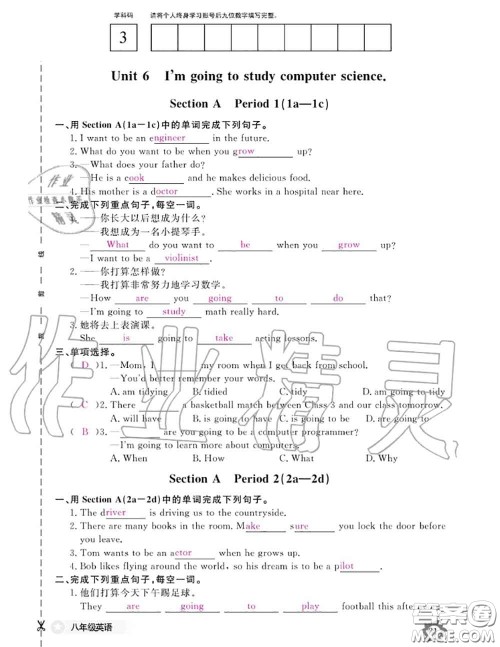 学科码 请将个人终身学习账号后九位数字填写完整。
3
Unit 6 I'm going to study computer science.
Section A Period 1(1a—1c)
一、用 Section A(1a—1c)中的单词完成下列句子。
1. I want to be an engineer in the future.
2. What do you want to be when you grow up?
3. —What does your father do?
—He is a cook and he makes delicious food.
4. His mother is a doctor. She works in a hospital near here.
二、完成下列重点句子,每空一词。
1. —你长大以后想成为什么?
—我想成为一名小提琴手。
—What do you want to be when you grow up?
—I want to be a violinist.
2. —你打算怎样做?
—我打算非常努力地学习数学。
—How are you going to do that?
—I'm going to study math really hard.
3. 她将去上表演课。
She is going to take acting lessons.
三、单项选择。
( D )1. —Mom, I my room when I get back from school.
—You'd better remember your words.
A. am tidying B. tidied C. tidy D. am going to tidy
( C )2. There a basketball match between Class 3 and our class tomorrow.
A. will have B. is going to have C. is going to be D. are going to
( B )3. — are you going to be a computer programmer?
—I'm going to learn more about computers.
A. When B. How C. What D. Why
Section A Period 2(2a—2d)
一、用 Section A(2a—2d)中的单词完成下列句子。
1. The driver is driving us to the countryside.
2. There are many books in the room. Make sure you lock the door before
you leave.
3. Tom wants to be an actor when he grows up.
4. Bob likes flying around the world, so his dream is to be a pilot.
二、完成下列重点句子,每空一词。
1. 他们打算今天下午踢足球。
They are going to play football this afternoon.
八年级英语
作业精灵
答案圈